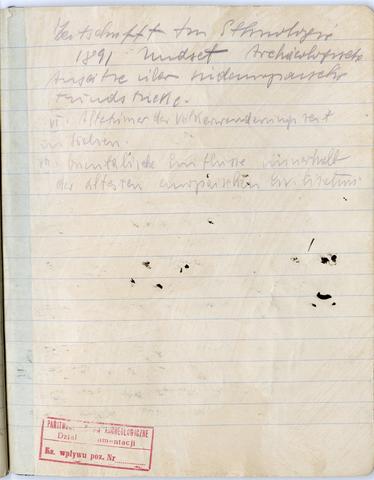 Zeitschrifft für Ethnologie
1891 Undset Archäologische
Aufsätze über südeuropäische
Fundstücke.
VI. Altertümer der Völkerwanderungszeit
in Italien.
VII. Orientalische Einflüsse innerhalb
der ältesten europäischen Civilisation.
PAŃSTWOWE ARCHEOLOGICZNE
Dział umentacji
Ks. wpływu poz. Nr